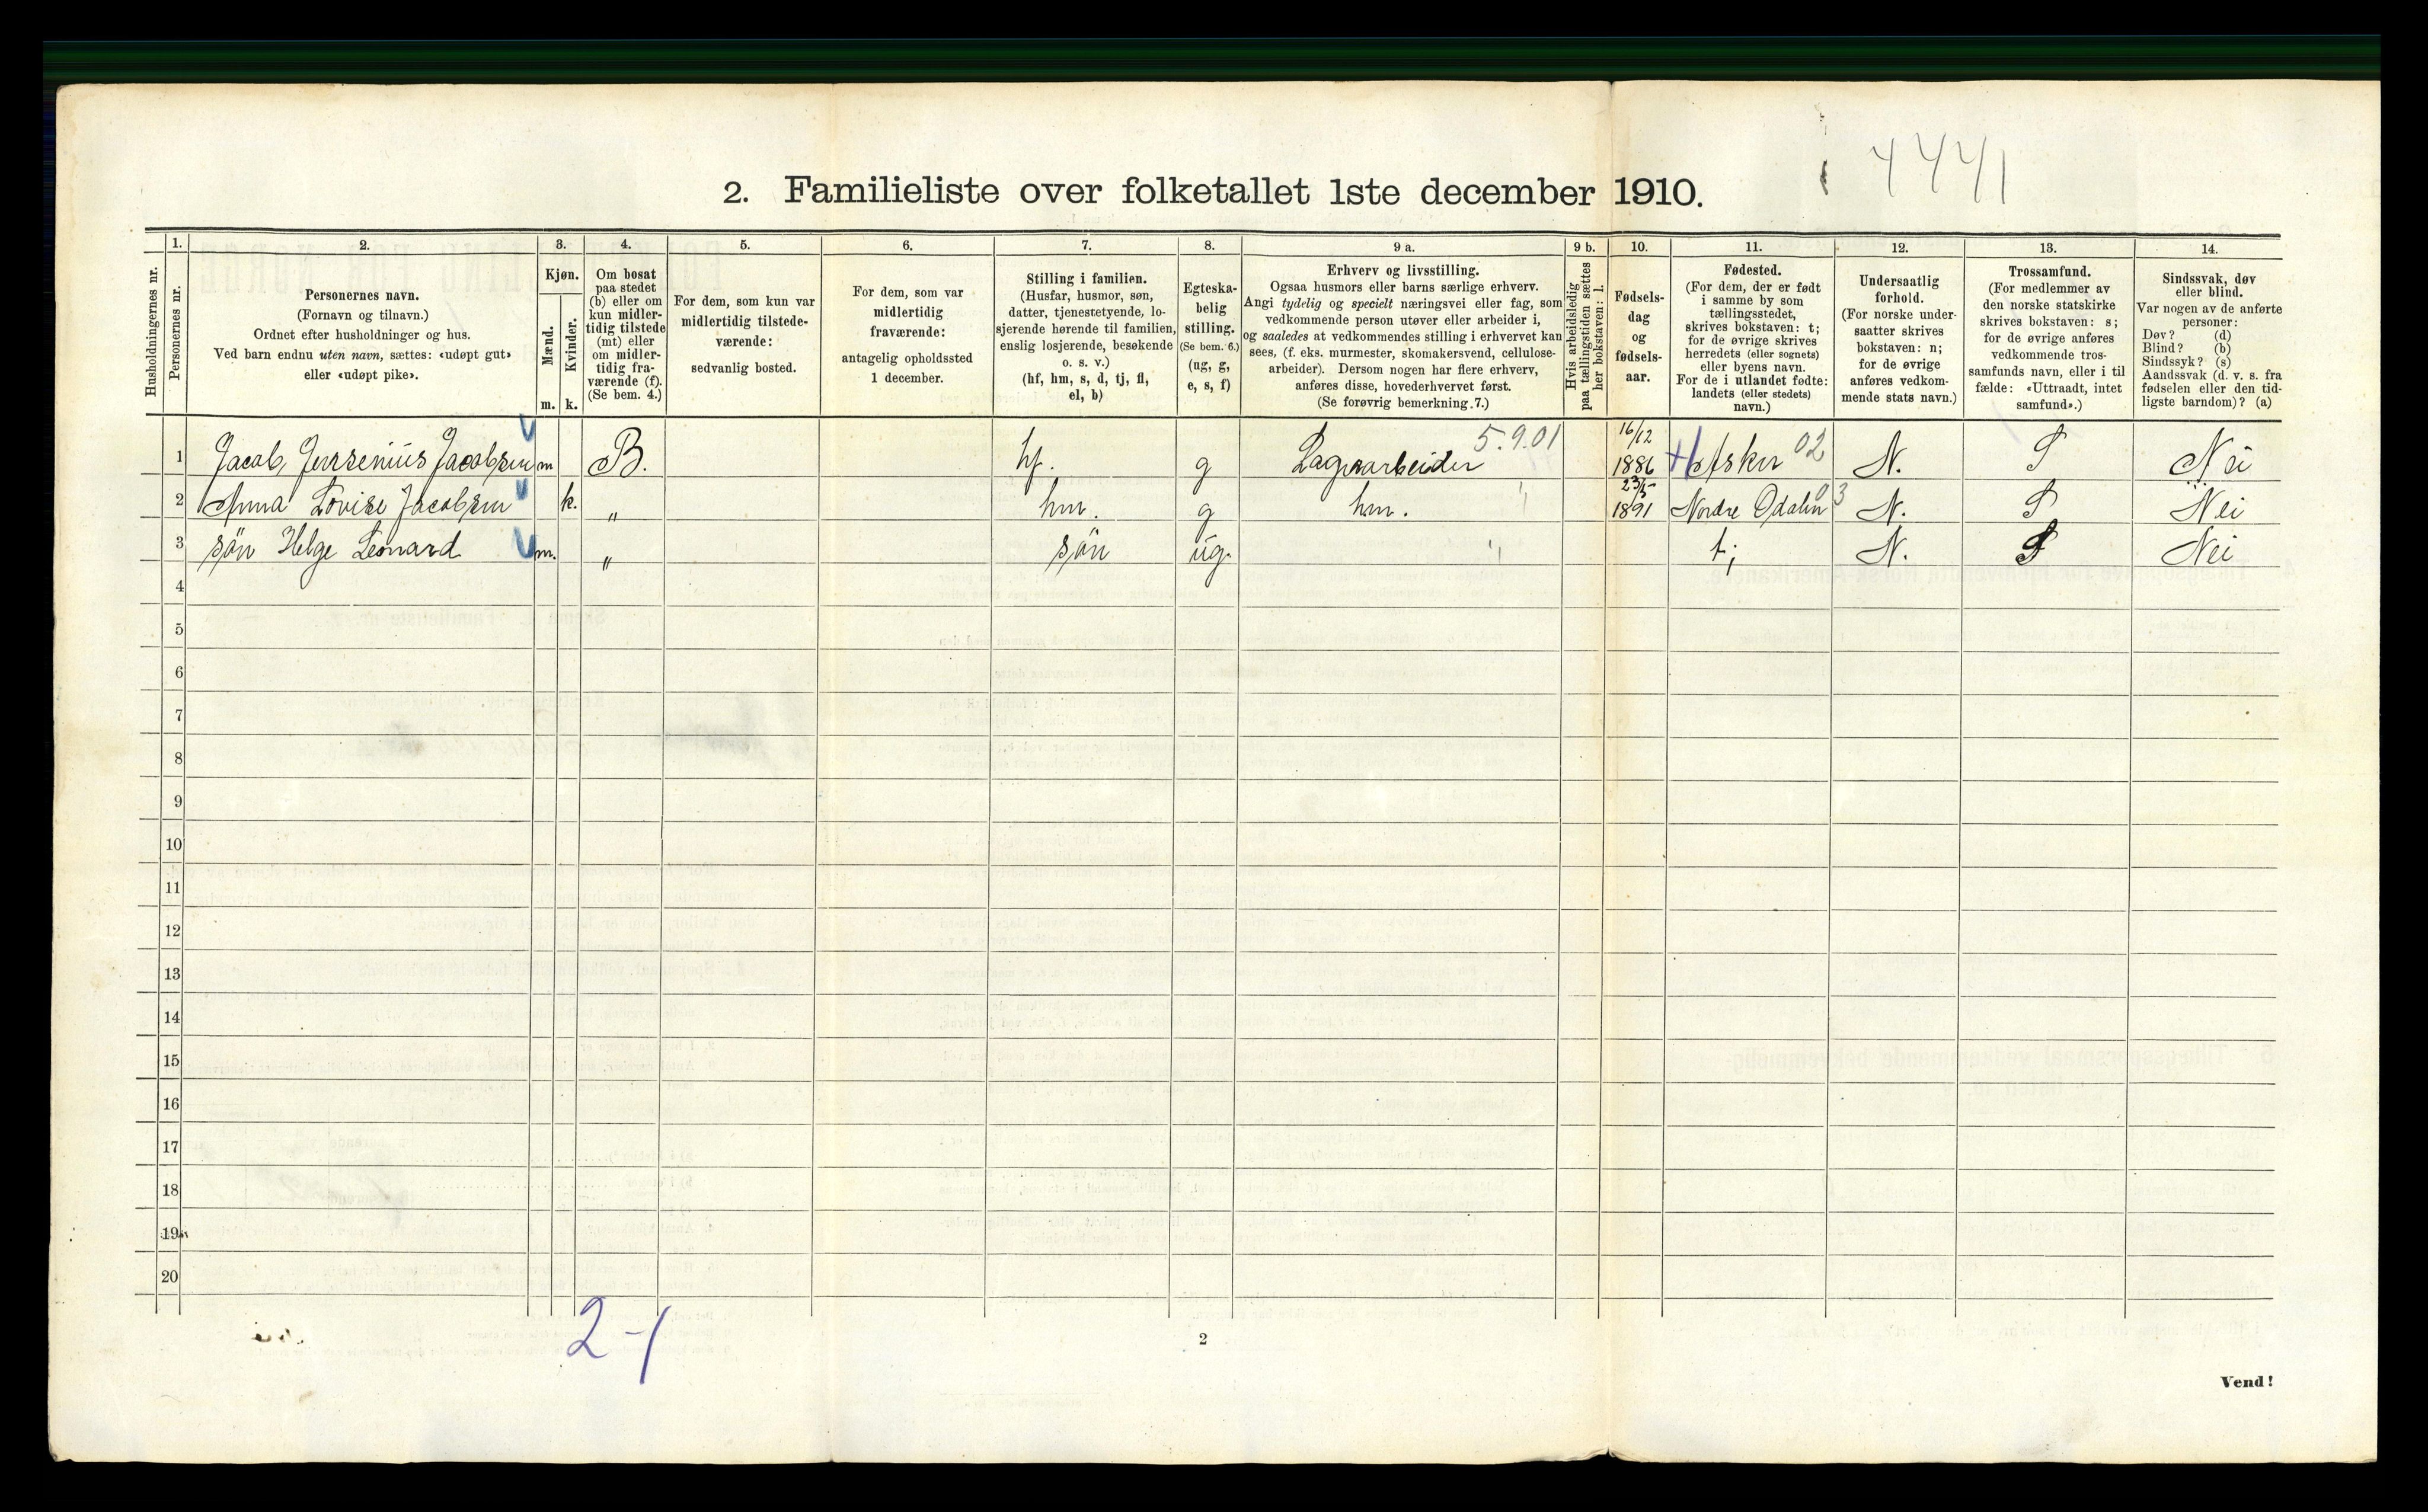 4441
2. Familieliste over folketallet 1ste december 1910.
Husholdningernes nr.
1.
Personernes nr.
2.
Personernes navn.
(Fornavn og tilnavn.)
Ordnet efter husholdninger og hus.
Ved barn endnu uten navn, sættes: «udøpt gut»
eller «udøpt pike».
3.
Kjøn.
Mænd.
Kvinder.
m. k.
4.
Om bosat
paa stedet
(b) eller om
kun midler-
tidig tilstede
(mt) eller
om midler-
tidig fra-
værende (f).
(Se bem. 4.)
5.
For dem, som kun var
midlertidig tilstede-
værende:
sedvanlig bosted.
6.
For dem, som var
midlertidig
fraværende:
antagelig opholdssted
1 december.
7.
Stilling i familien.
(Husfar, husmor, søn,
datter, tjenestetyende, lo-
sjerende hørende til familien,
enslig losjerende, besøkende
o. s. v.)
(hf, hm, s, d, tj, fl,
el, b)
8.
Egteska-
belig
stilling.
(Se bem. 6.)
(ug, g,
e, s, f)
9 a.
Erhverv og livsstilling.
Ogsaa husmors eller barns særlige erhverv.
Angi tydelig og specielt næringsvei eller fag, som
vedkommende person utøver eller arbeider i,
og saaledes at vedkommendes stilling i erhvervet kan
sees, (f. eks. murmester, skomakersvend, cellulose-
arbeider). Dersom nogen har flere erhverv,
anføres disse, hovederhvervet først.
(Se forøvrig bemerkning 7.)
9 b.
Hvis arbeidsledig
paa tællingstiden sættes
her bokstaven: l.
10.
Fødsels-
dag
og
fødsels-
aar.
11.
Fødested.
(For dem, der er født
i samme by som
tællingsstedet,
skrives bokstaven: t;
for de øvrige skrives
herredets (eller sognets)
eller byens navn.
For de i utlandet fødte:
landets (eller stedets)
navn.)
12.
Undersaatlig
forhold.
(For norske under-
saatter skrives
bokstaven: n;
for de øvrige
anføres vedkom-
mende stats navn.)
13.
Trossamfund.
(For medlemmer av
den norske statskirke
skrives bokstaven: s;
for de øvrige anføres
vedkommende tros-
samfunds navn, eller i til
fælde: «Uttraadt, intet
samfund».)
14.
Sindssvak, døv
eller blind.
Var nogen av de anførte
personer:
Døv? (d)
Blind? (b)
Sindssyk? (s)
Aandssvak (d. v. s. fra
fødselen eller den tid-
ligste barndom)? (a)
1 Jacob Jerrsenius Jacobsen m B. hf. g Lagerarbeider 5.9.01 16/12 1886 Asker 02 N. S Nei
2 Anna Lovise Jacobsen k. " hm. g hm. 23/5 1891 Nordre Odalen 03 N. S Nei
3 søn Helge Leonard m. " søn ug. t; N. S Nei
4
5
6
7
8
9
10
11
12
13
14
15
16
17
18
19
20
2-1
2
Vend!